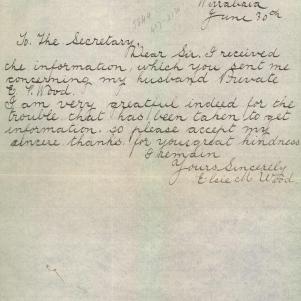 Wirrabara
June 30th
To The Secretary,
Dear Sir, I received
the information, which you sent me
concerning my husband Private
E. V. Wood.
I am very greatful indeed for the
trouble that has been taken to get
information. so please accept my
sincere thanks. for your great kindness
I remain
Yours Sincerely
Elsie M. Wood